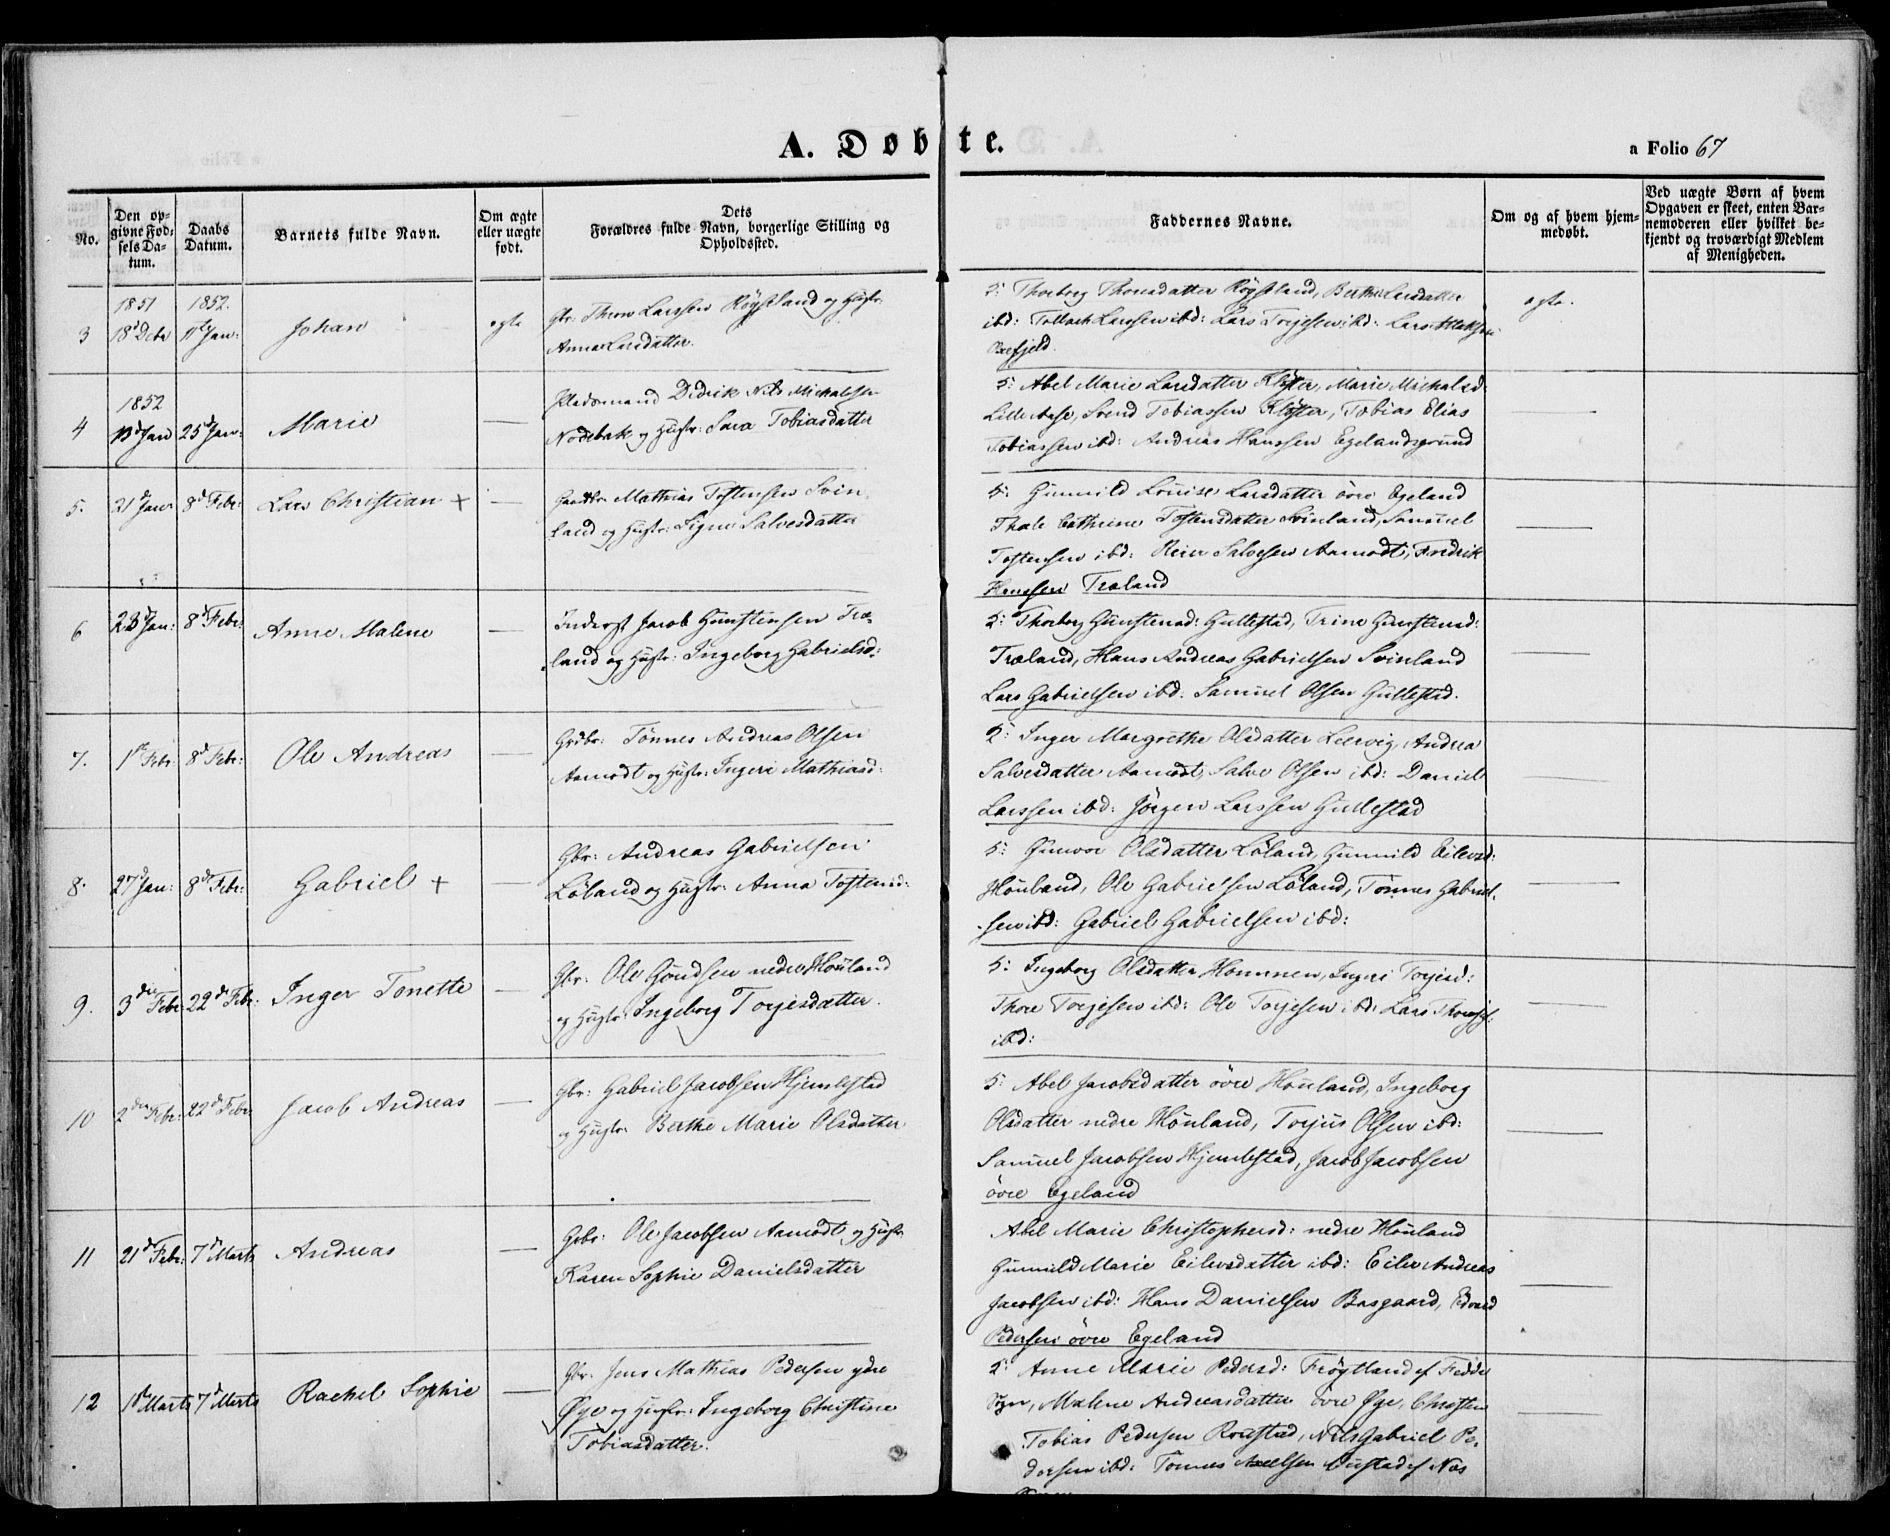 A. Døbte.
a Folio 67
No.
Den op-
givne Fød-
sels Da-
tum.
Daabs
Datum.
Barnets fulde Navn.
Om ægte
eller uægte
født.
Dets
Forældres fulde Navn, borgerlige Stilling og
Opholdssted.
Faddernes Navne.
Om og af hvem hjem-
medøbt.
Ved uægte Børn af hvem
Opgaven er skeet, enten Bar-
nemoderen eller hvilket be-
kjendt og troværdigt Medlem
af Menigheden.
1851 1852.
3 18d Decbr 11te Jan: Johan egte
Gbr: Thore Larssen Røysland og Hustr:
Anna Larsdatter.
Thorborg Thoresdatter Røysland, Berthe Larsdatter
ibd: Tollach Larssen ibd: Lars Torjesen ibd: Lars
egte.
1852
4 13d Jan 25d Jan: Marie —
Pladsmand Didrik Nils Michalsen
Nødebak og Hustr: Sara Tobiasdatter
5: Abel Marie Larsdatter Kloster, Marie Michalsd:
Lille Aase, Svend Tobiassen Kloster, Tobias Elias
Tobiassen ibd: Andreas Hanssen Egelandsgrund
5. 21d Jan 8d Febr: Lars Christian + —
Gaardbr: Mathias Tostensen Svin
land og Hustr: Signe Salvesdatter
5: Gunnild Louise Larsdatter övre Egeland
Thale Cathrine Tostensdatter Svinland, Samuel
Tostensen ibd: Reier Salvesen Aamodt, Fredrik
Hanssen Træland
6 23d Jan: 8d Febr: Anne Malene —
Inderst Jacob Gunstensen Træ-
land og Hustr: Ingeborg Gabrielsd:
5: Thorborg Gunstensd: Gullestad, Trine Gunstensd:
Træland, Hans Andreas Gabrielsen Svinland
Lars Gabrielsen ibd: Samuel Olsen Gullestad.
7. 1ste Febr: 8d Febr: Ole Andreas —
Grdbr: Tönnes Andreas Olsen
Aamodt og Hustr: Ingeri Mathiasd:
5: Inger Margrethe Olsdatter Leervig, Andrea
Salvesdatter Aamodt, Salve Olsen ibd: Daniel
Larssen ibd: Jörgen Larssen Gullestad
8. 27d Jan: 8d Febr: Gabriel + —
Gbr: Andreas Gabrielsen
Löland og Hustr: Anna Tostensd:
5: Gunvor Olsdatter Löland, Gunnild Eilevsd:
Houland, Ole Gabrielsen Löland, Tönnes Gabriel-
sen ibd: Gabriel Gabrielsen ibd:
9. 3die Febr: 22de Febr: Inger Tonette —
Gbr: Ole nedre Houland
og Hustr: Ingeborg Torjesdatter.
5: Ingeborg Olsdatter Hommen, Ingeri Torjesd:
Thore Torjesen ibd: Ole Torjesen ibd: Lars
ibd:
10 2den Febr: 22d Febr: Jacob Andreas —
Gbr: Gabriel Jacobsen Hjemlestad
og Hustr: Berthe Marie Olsdatter
5: Abel Jacobsdatter övre Houland, Ingeborg
Olsdatter nedre Houland, Torjus Olsen ibd:
Samuel Jacobsen Hjemlestad, Jacob Jacobsen
övre Egeland
11 21d Febr: 7d Marts Andreas —
Grbr: Ole Jacobsen Aamodt og Hustr:
Karen Sophie Danielsdatter
Abel Marie Christophersd: nedre Houland
Gunnild Marie Eilevsdatter ibd: Eilev Andreas
Jacobsen ibd: Hans Danielsen Basgaard, Edvard
Pedersen övre Egeland
12 1d Marts 7d Marts Rachel Sophie —
Gbr: Jens Mathias Pedersen ydre
Øye og Hustr: Ingeborg Christine
Tobiasdatter.
5: Anne Marie Pedersd: Fröytland af Fedde
Sogn, Malene Andreasdatter övre Øye, Christen
Tobias Pedersen Röiestad, Nils Gabriel Pe-
dersen ibd: Tönnes Axelsen af Næs